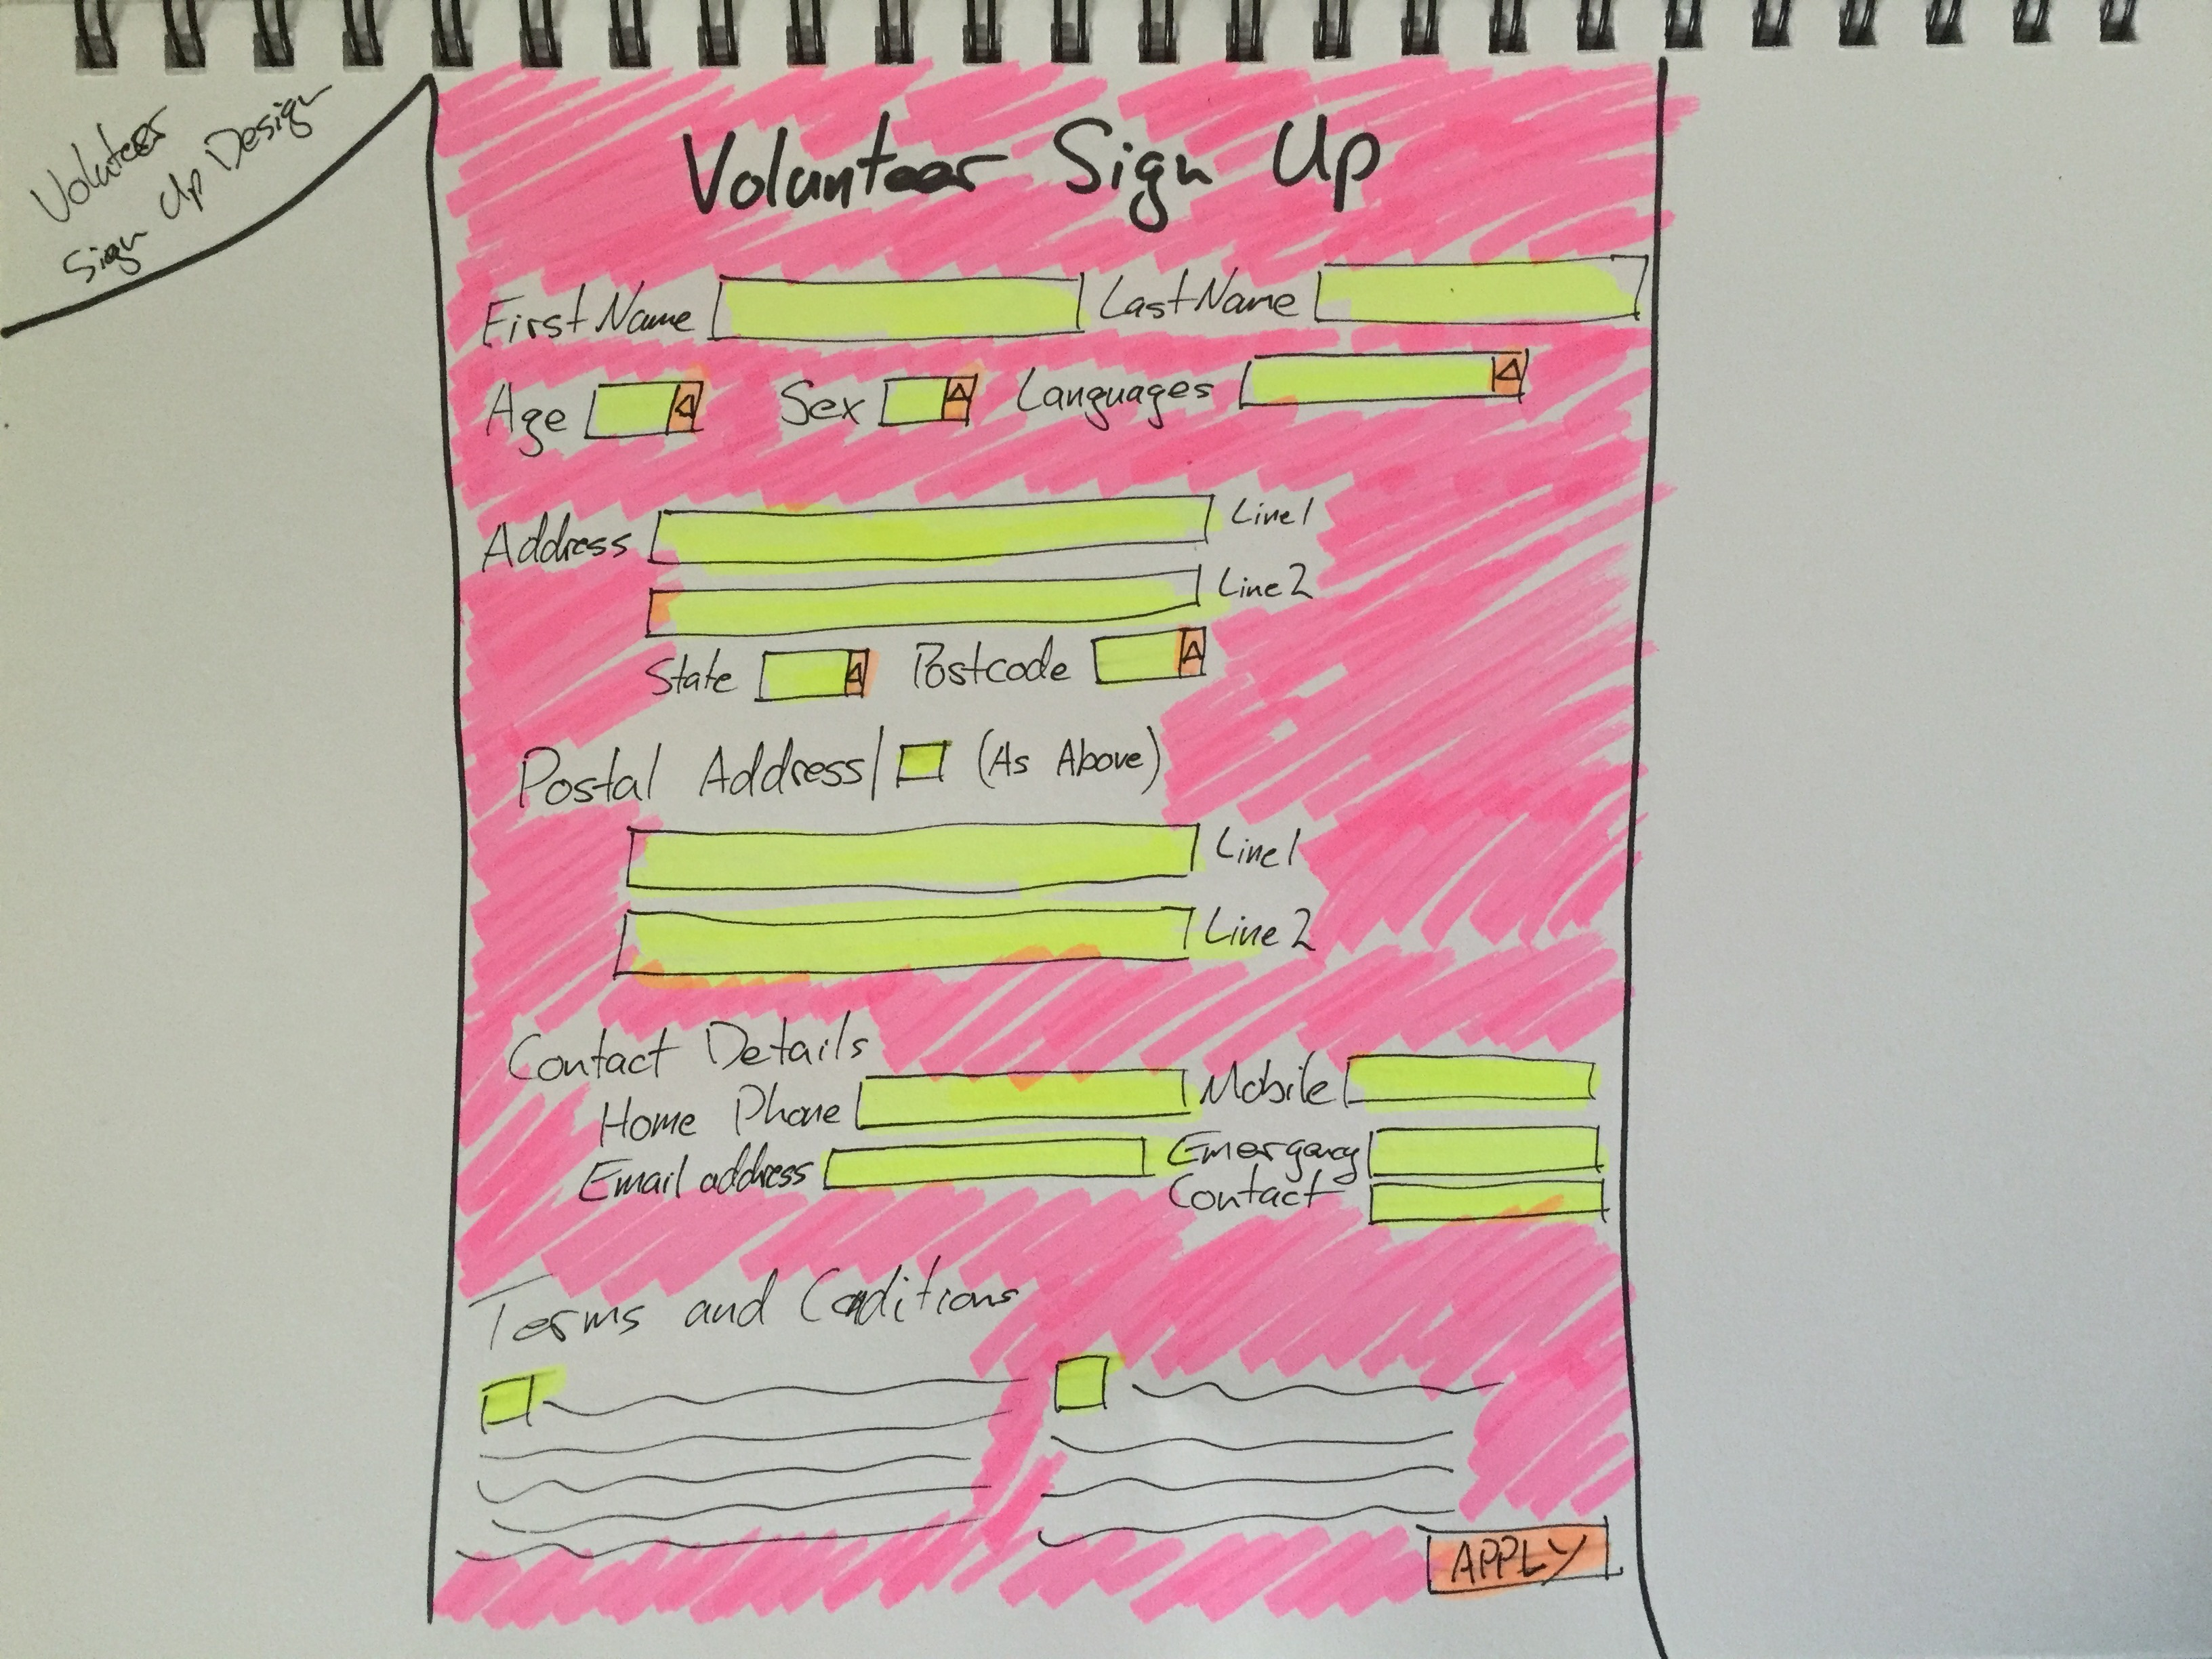 Voluteer
Sign Up Design
Volunteer Sign Up
First Name Last Name
Age Sex Languages
Address Line 1
Line 2
State Postcode
Postal Address/ (As Above)
Line 1
Line 2
Contact Details
Home Phone Mobile
Email address Emergency
Contact
Terms and Conditions
APPLY